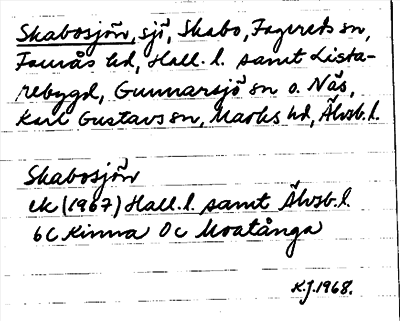 Skabosjön, sjö, Skabo, Fagereds sn,
Faurås hd, Hall. l. samt Lista-
rebygd, Gunnarsjö sn o. Näs,
Karl Gustavs sn, Marks hd, Älvsb. l.
Skabosjön
ek (1967) Hall. l. samt Älvsb. l.
6C Kinna 0c Moatånga
K.J. 1968.